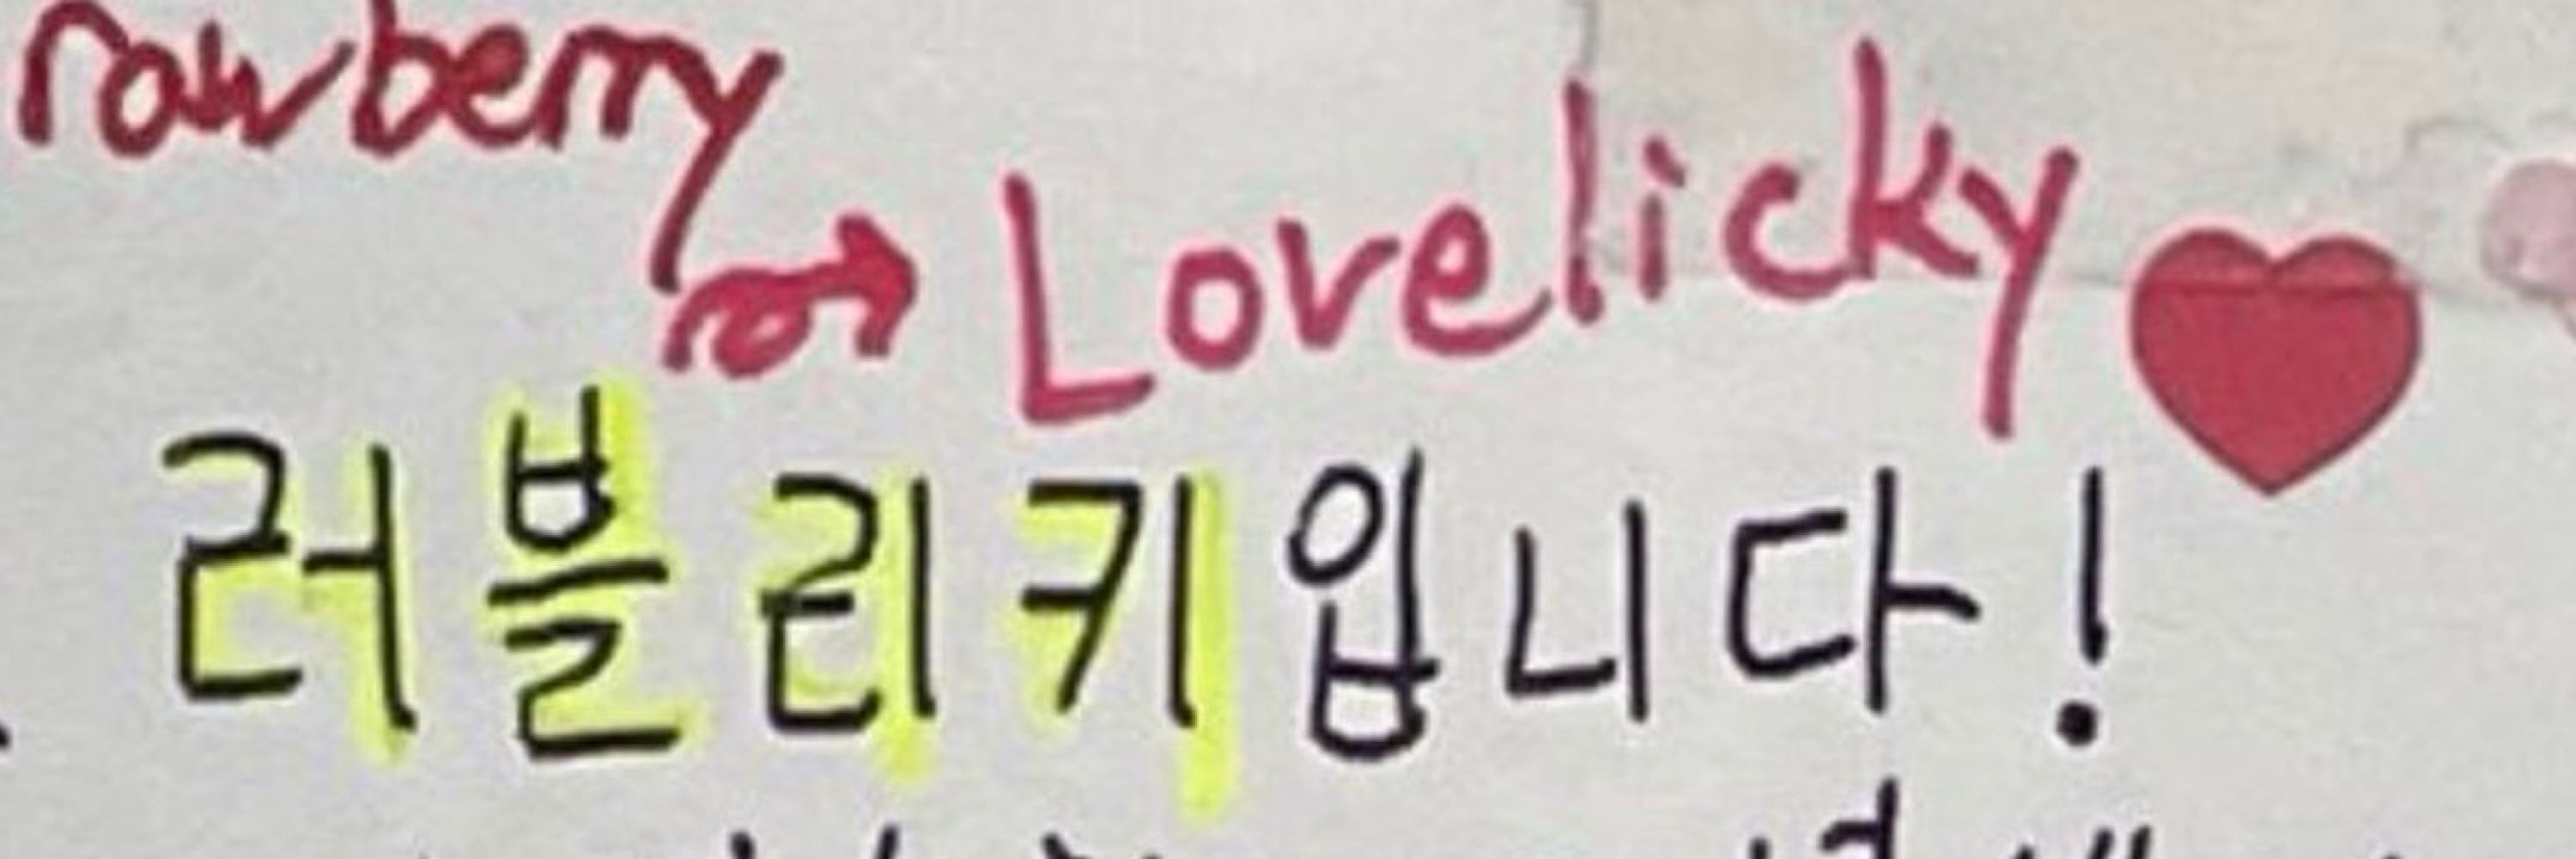 rawberry
Lovelicky
러블리키입니다!